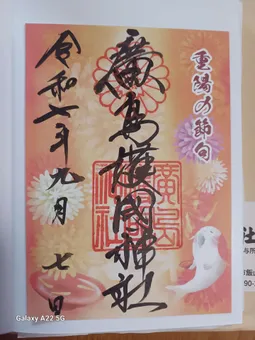 重陽の節句
廣島護國神社
令和七年九月七日
社
90-
Galaxy A22 5G